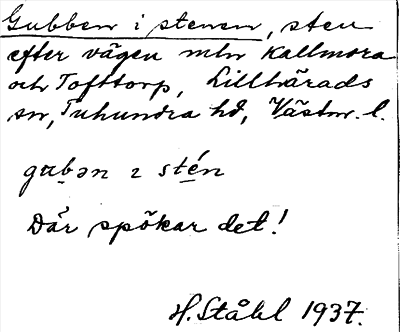 Gubben i stenen, sten
efter vägen mln Kallmora
och Tofttorp, Lillhärads
sn, Tuhundra hd, Västm. l.
gubən ɩ stén
Där spökar det!
H. Ståhl 1937.